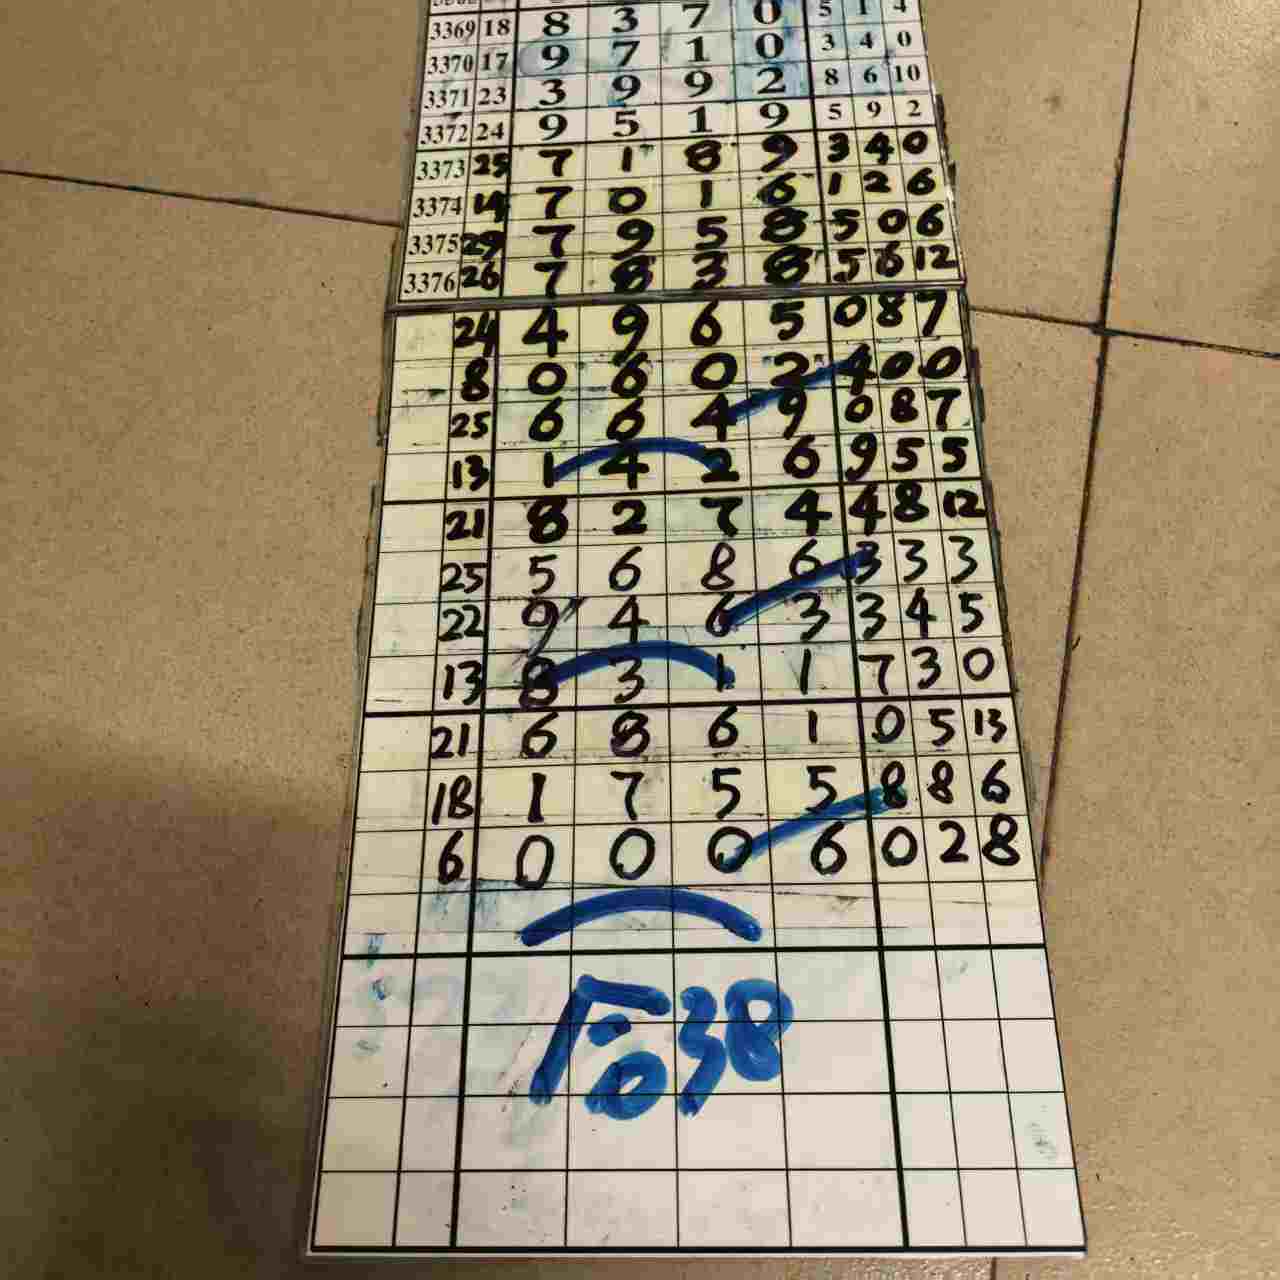 3369 18 8 3 7 0 5 1 4
3370 17 9 7 1 0 3 4 0
3371 23 3 9 9 2 8 6 10
3372 24 9 5 1 9 5 9 2
3373 25 7 1 8 9 3 4 0
3374 14 7 0 1 6 1 2 6
3375 29 7 9 5 8 5 0 6
3376 26 7 8 3 8 5 6 12
24 4 9 6 5 0 8 7
8 0 6 0 2 4 0 0
25 6 6 4 9 0 8 7
13 1 4 2 6 9 5 5
21 8 2 7 4 4 8 12
25 5 6 8 6 3 3 3
22 9 4 6 3 3 4 5
13 8 3 1 1 7 3 0
21 6 8 6 1 0 5 13
18 1 7 5 5 8 8 6
6 0 0 0 6 0 2 8
合38